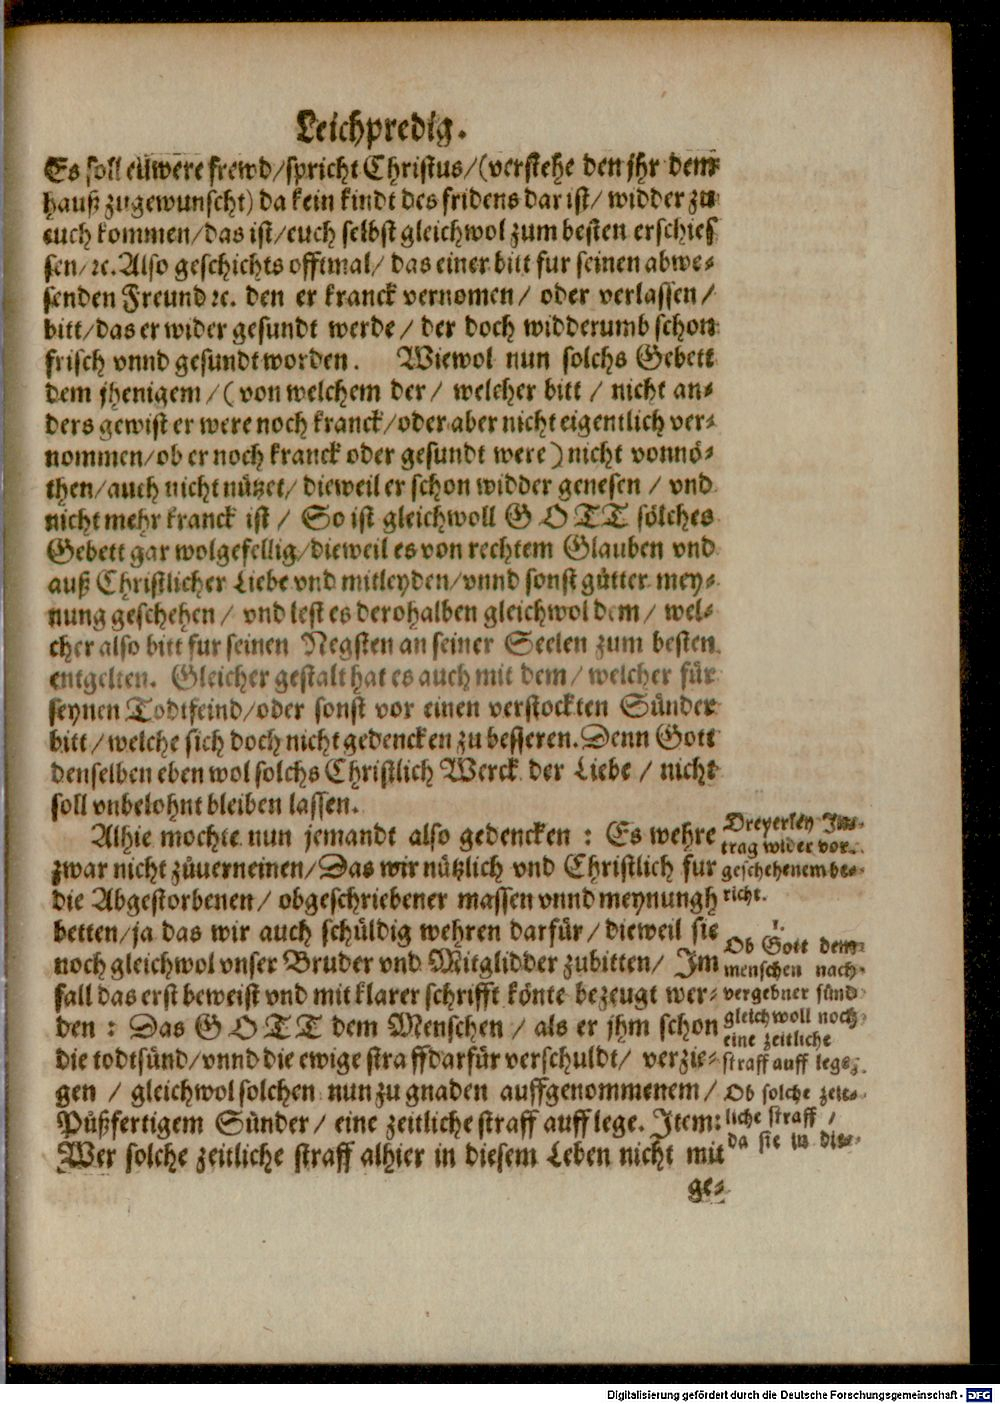 Leichpredig.
Es soll eüwere frewd/spricht Christus/(verstehe den jhr dem
hauß zugewunscht) da kein kindt des fridens dar ist/ widder zu
euch kommen/das ist/euch selbst gleichwol zum besten erschies
sen/ꝛc. Also geschichts offtmal/ das einer bitt fur seinen abwe-
senden Freund ꝛc. den er kranck vernomen/ oder verlassen/
bitt/das er wider gesundt werde/ der doch widderumb schon
frisch vnnd gesundt worden. Wiewol nun solchs Gebett
dem jhenigem/(von welchem der/ welcher bitt/ nicht an-
ders gewist er were noch kranck/oder aber nicht eigentlich ver-
nommen/ob er noch kranck oder gesundt were) nicht vonnö-
then/auch nicht nützet/ dieweil er schon widder genesen/ vnd
nicht mehr kranck ist/ So ist gleichwoll GOTT sölches
Gebett gar wolgefellig/dieweil es von rechtem Glauben vnd
auß Christlicher Liebe vnd mitleyden/vnnd sonst gütter mey-
nung geschehen/ vnd lest es derohalben gleichwol dem/ wel-
cher also bitt fur seinen Negsten an seiner Seelen zum besten
entgelten. Gleicher gestalt hat es auch mit dem/ welcher für
seynen Todtfeind/oder sonst vor einen verstockten Sünder
bitt/welche sich doch nicht gedencken zu besseren. Denn Gott
denselben eben wol solchs Christlich Werck der Liebe/ nicht
soll vnbelohnt bleiben lassen.
Alhie mochte nun jemandt also gedencken : Es wehre
zwar nicht züuerneinen/Das wir nützlich vnd Christlich fur
die Abgestorbenen/ obgeschriebener massen vnnd meynungh
betten/ja das wir auch schüldig wehren darfür/ dieweil sie
noch gleichwol vnser Bruder vnd Mitglidder zubitten/ Im
fall das erst beweist vnd mit klarer schrifft könte bezeugt wer-
den : Das GOTT dem Menschen/ als er jhm schon
die todtsünd/vnnd die ewige straff darfür verschuldt/ verzie-
gen/ gleichwol solchen nun zu gnaden auffgenommenem/
Püßfertigem Sünder/ eine zeitliche straff auff lege. Item:
Wer solche zeitliche straff alhier in diesem Leben nicht mit
ge-
Dreyerley Jn-
trag wider vor-
geschehenem be-
richt.
1.
Ob Gott dem
menschen nach
vergebner sünd
gleichwoll noch
eine zeitliche
straff auff lege.
Ob solche zeit-
liche straff/
da sie in die-
Digitalisierung gefördert durch die Deutsche Forschungsgemeinschaft - DFG